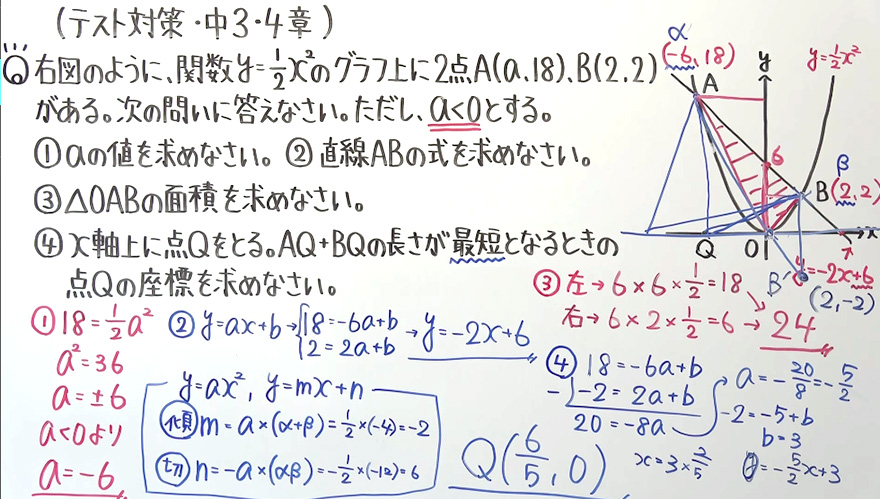 (テスト対策・中3・4章)
Q 右図のように、関数y=1/2x²のグラフ上に2点A(a,18)、B(2,2)
がある。次の問いに答えなさい。ただし、a<0とする。
①aの値を求めなさい。 ②直線ABの式を求めなさい。
③△OABの面積を求めなさい。
④x軸上に点Qをとる。AQ+BQの長さが最短となるときの
点Qの座標を求めなさい。
α
(-6,18)
A
y
y=1/2x²
6
β
B(2,2)
Q
O
x
B'
y=-2x+6
(2,-2)
①18=1/2a²
a²=36
a=±6
a<0より
a=-6
②y=ax+b→{18=-6a+b
2=2a+b
→y=-2x+6
y=ax², y=mx+n
傾 m=a×(α+β)=1/2×(-4)=-2
切 n=-a×(αβ)=-1/2×(-12)=6
③左→6×6×1/2=18
右→6×2×1/2=6→24
④18=-6a+b
-) -2=2a+b
20=-8a
a=-20/8=-5/2
-2=-5+b
b=3
y=-5/2x+3
x=3×2/5
Q(6/5,0)